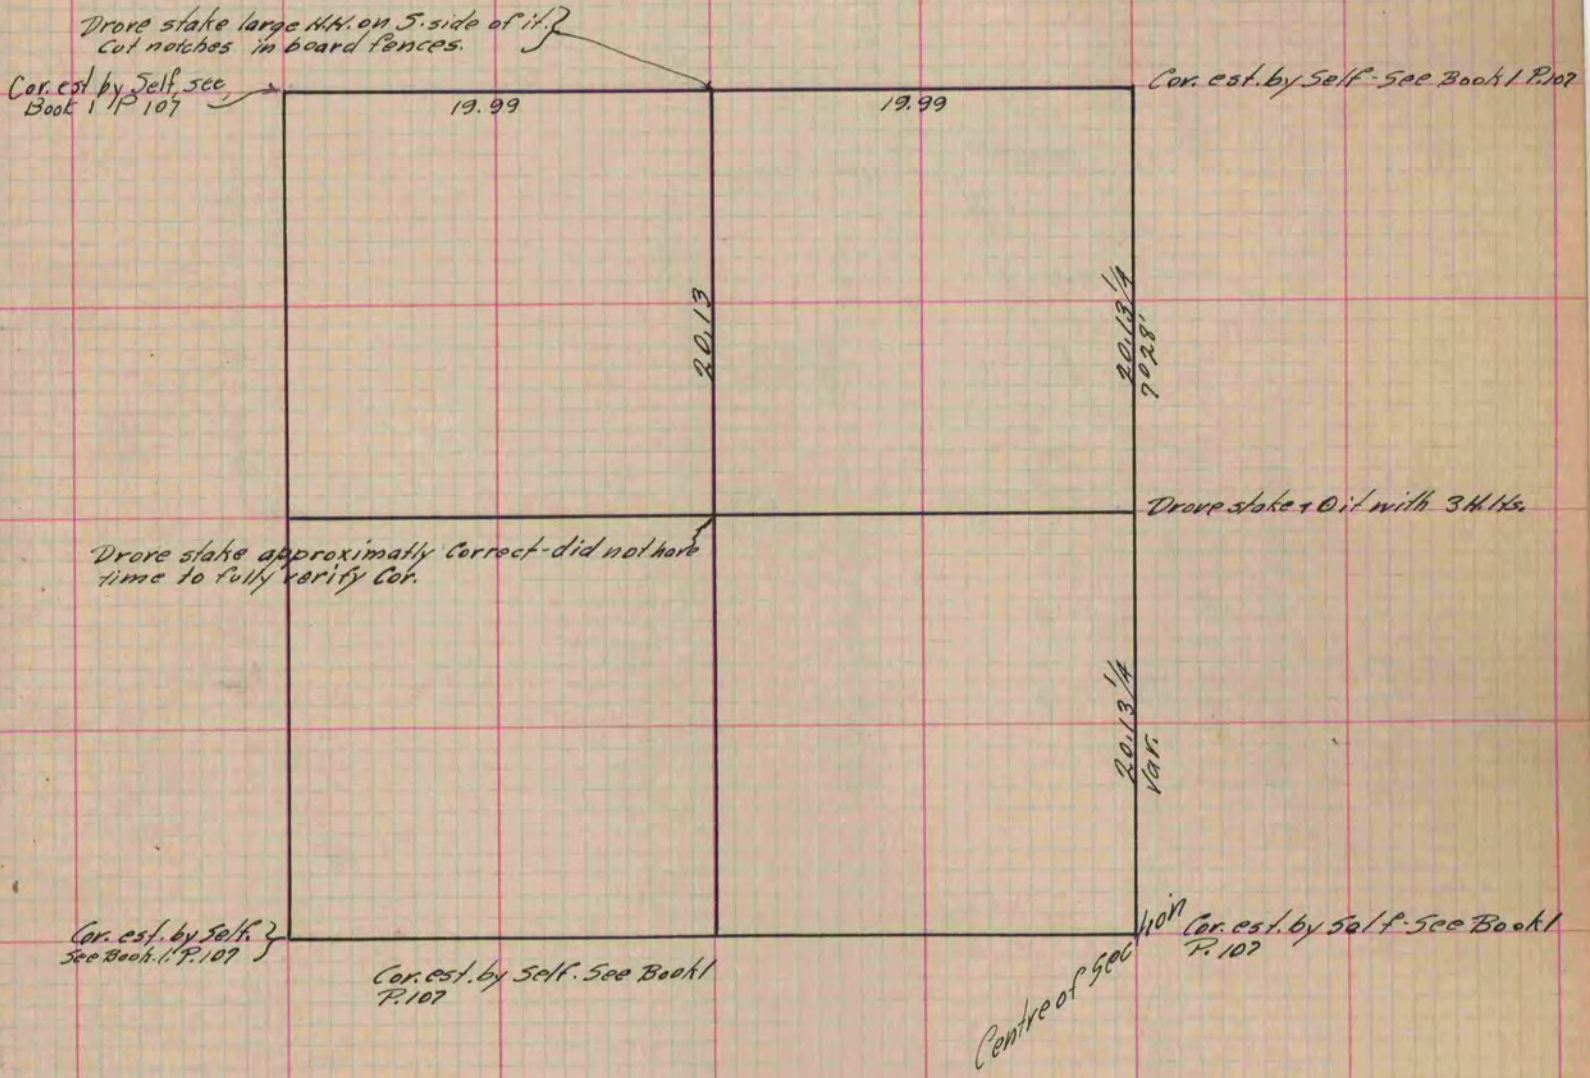 Drove stake large H.H. on S. side of it.
Cut notches in board fences.
Cor. est by Self, see
Book 1 P 107
Cor. est. by Self - See Book 1 P. 107
19.99
19.99
20.13
20.13 1/4
7° 28'
Drove stake & O it with 3 H.Hs.
Drove stake approximatly Correct - did not have
time to fully verify Cor.
20.13 1/4
Var.
Cor. est. by Self.
See Book. 1. P. 107
Cor. est. by Self. See Book 1
P. 107
Centre of Section
Cor. est. by Self - See Book 1
P. 107